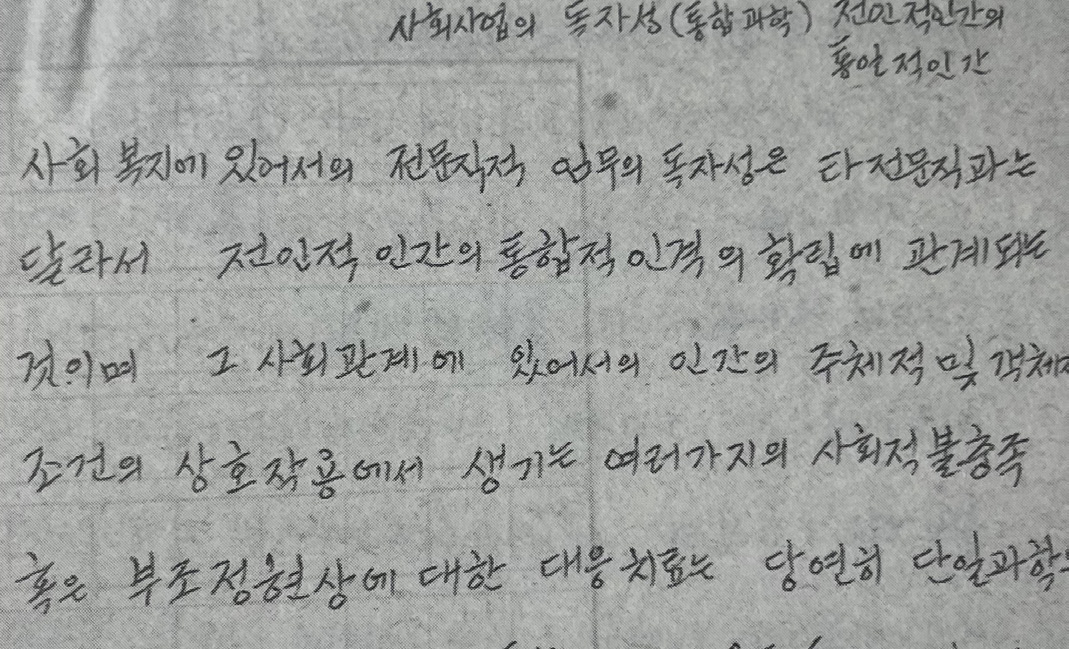 사회사업의 독자성(통합과학) 전인적인간의
통일적인간
사회복지에 있어서의 전문직적 업무의 독자성은 타전문직과는
달라서 전인적 인간의 통합적 인격의 확립에 관계되는
것이며 그 사회관계에 있어서의 인간의 주체적 및 객체적
조건의 상호작용에서 생기는 여러가지의 사회적불충족
혹은 부조정현상에 대한 대응치료는 당연히 단일과학